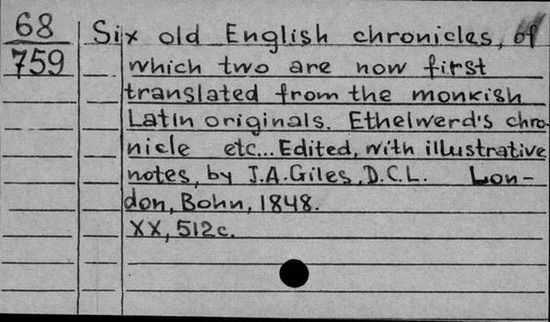 68 Six old English chronicles, of
759 which two are now first
translated from the monkish
Latin originals. Ethelwerd's chro-
nicle etc... Edited, with illustrative
notes, by J.A.Giles, D.C.L. Lon-
don, Bohn, 1848.
XX, 512c.